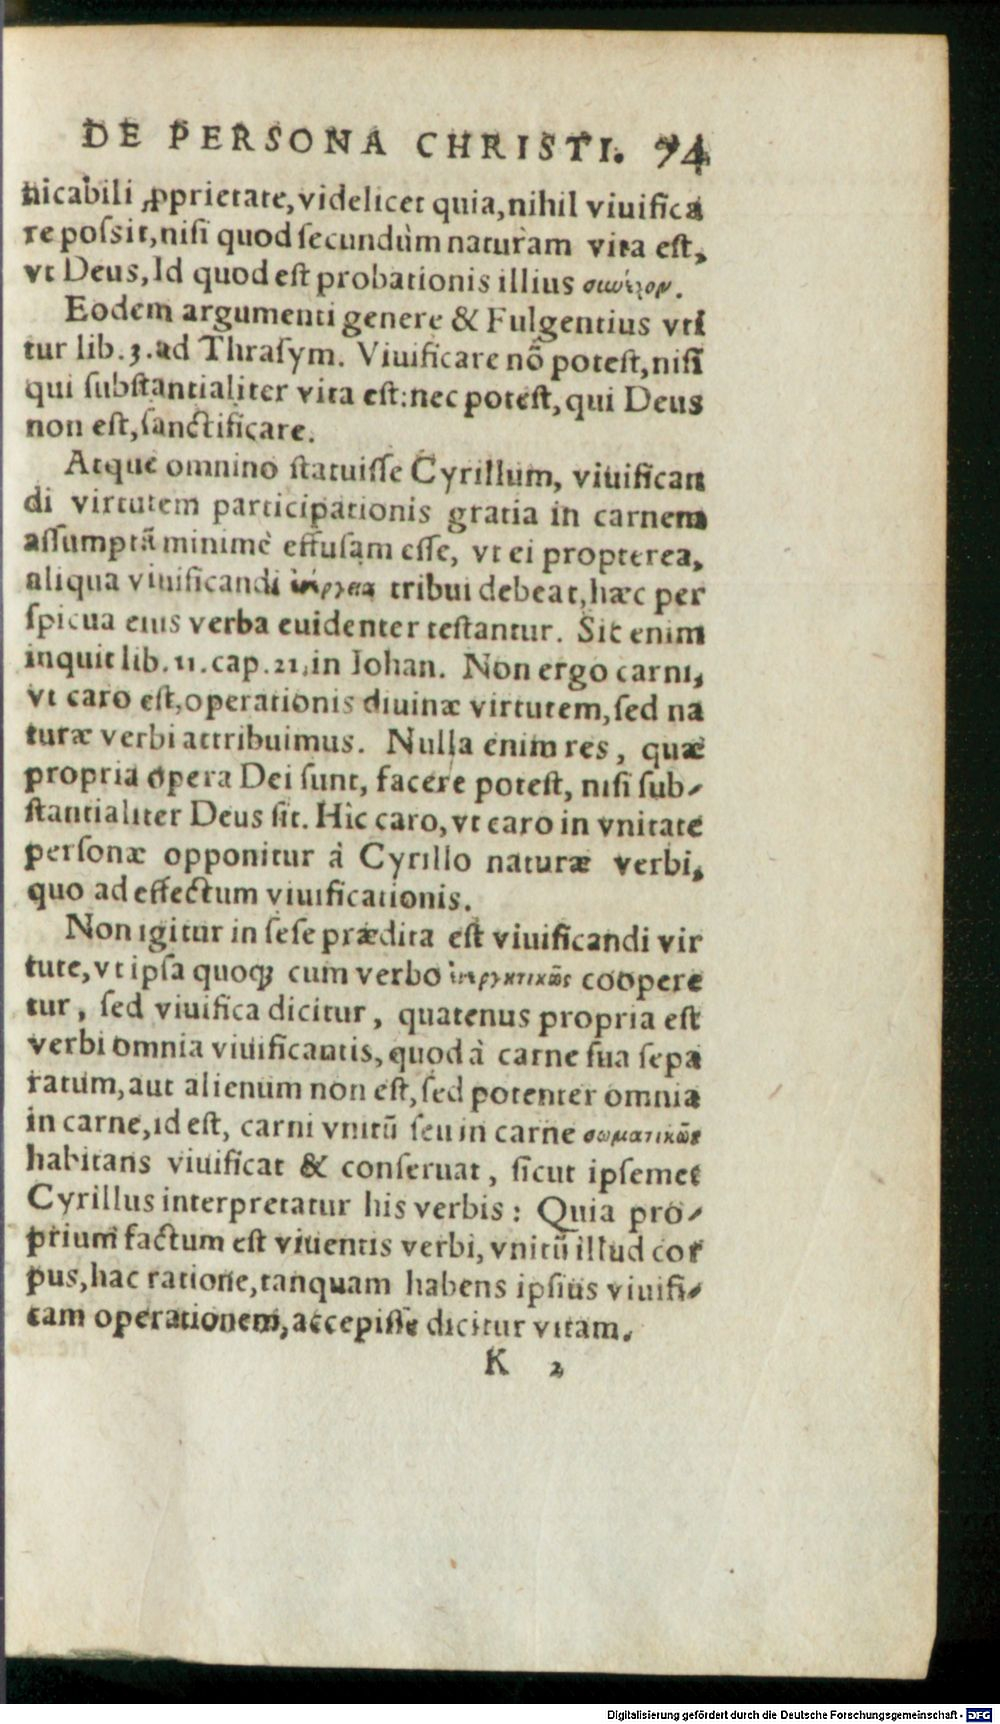 DE PERSONA CHRISTI. 74
nicabili ꝓprietate, videlicet quia, nihil viuifica
re possit, nisi quod secundùm naturam vita est,
vt Deus, Id quod est probationis illius
Eodem argumenti genere & Fulgentius vti
tur lib. 3. ad Thrasym. Viuificare nõ potest, nisi
qui substantialiter vita est: nec potest, qui Deus
non est, sanctificare.
Atque omnino statuisse Cyrillum, viuifican
di virtutem participationis gratia in carnem
assumptã minimè effusam esse, vt ei propterea,
aliqua viuificandi tribui debeat, hæc per
spicua eius verba euidenter testantur. Sic enim
inquit lib. 11. cap. 21. in Iohan. Non ergo carni,
vt caro est, operationis diuinæ virtutem, sed na
turæ verbi attribuimus. Nulla enim res, quæ
propria opera Dei sunt, facere potest, nisi sub-
stantialiter Deus sit. Hic caro, vt caro in vnitate
personæ opponitur à Cyrillo naturæ verbi,
quo ad effectum viuificationis.
Non igitur in sese prædita est viuificandi vir
tute, vt ipsa quoqꝫ cum verbo coopere
tur, sed viuifica dicitur, quatenus propria est
verbi omnia viuificantis, quod à carne sua sepa
ratum, aut alienum non est, sed potenter omnia
in carne, id est, carni vnitũ seu in carne σωματικῶς
habitans viuificat & conseruat, sicut ipsemet
Cyrillus interpretatur his verbis: Quia pro-
prium factum est viuentis verbi, vnitũ illud cor
pus, hac ratione, tanquam habens ipsius viuifi-
cam operationem, accepisse dicitur vitam.
K 2
Digitalisierung gefördert durch die Deutsche Forschungsgemeinschaft - DFG